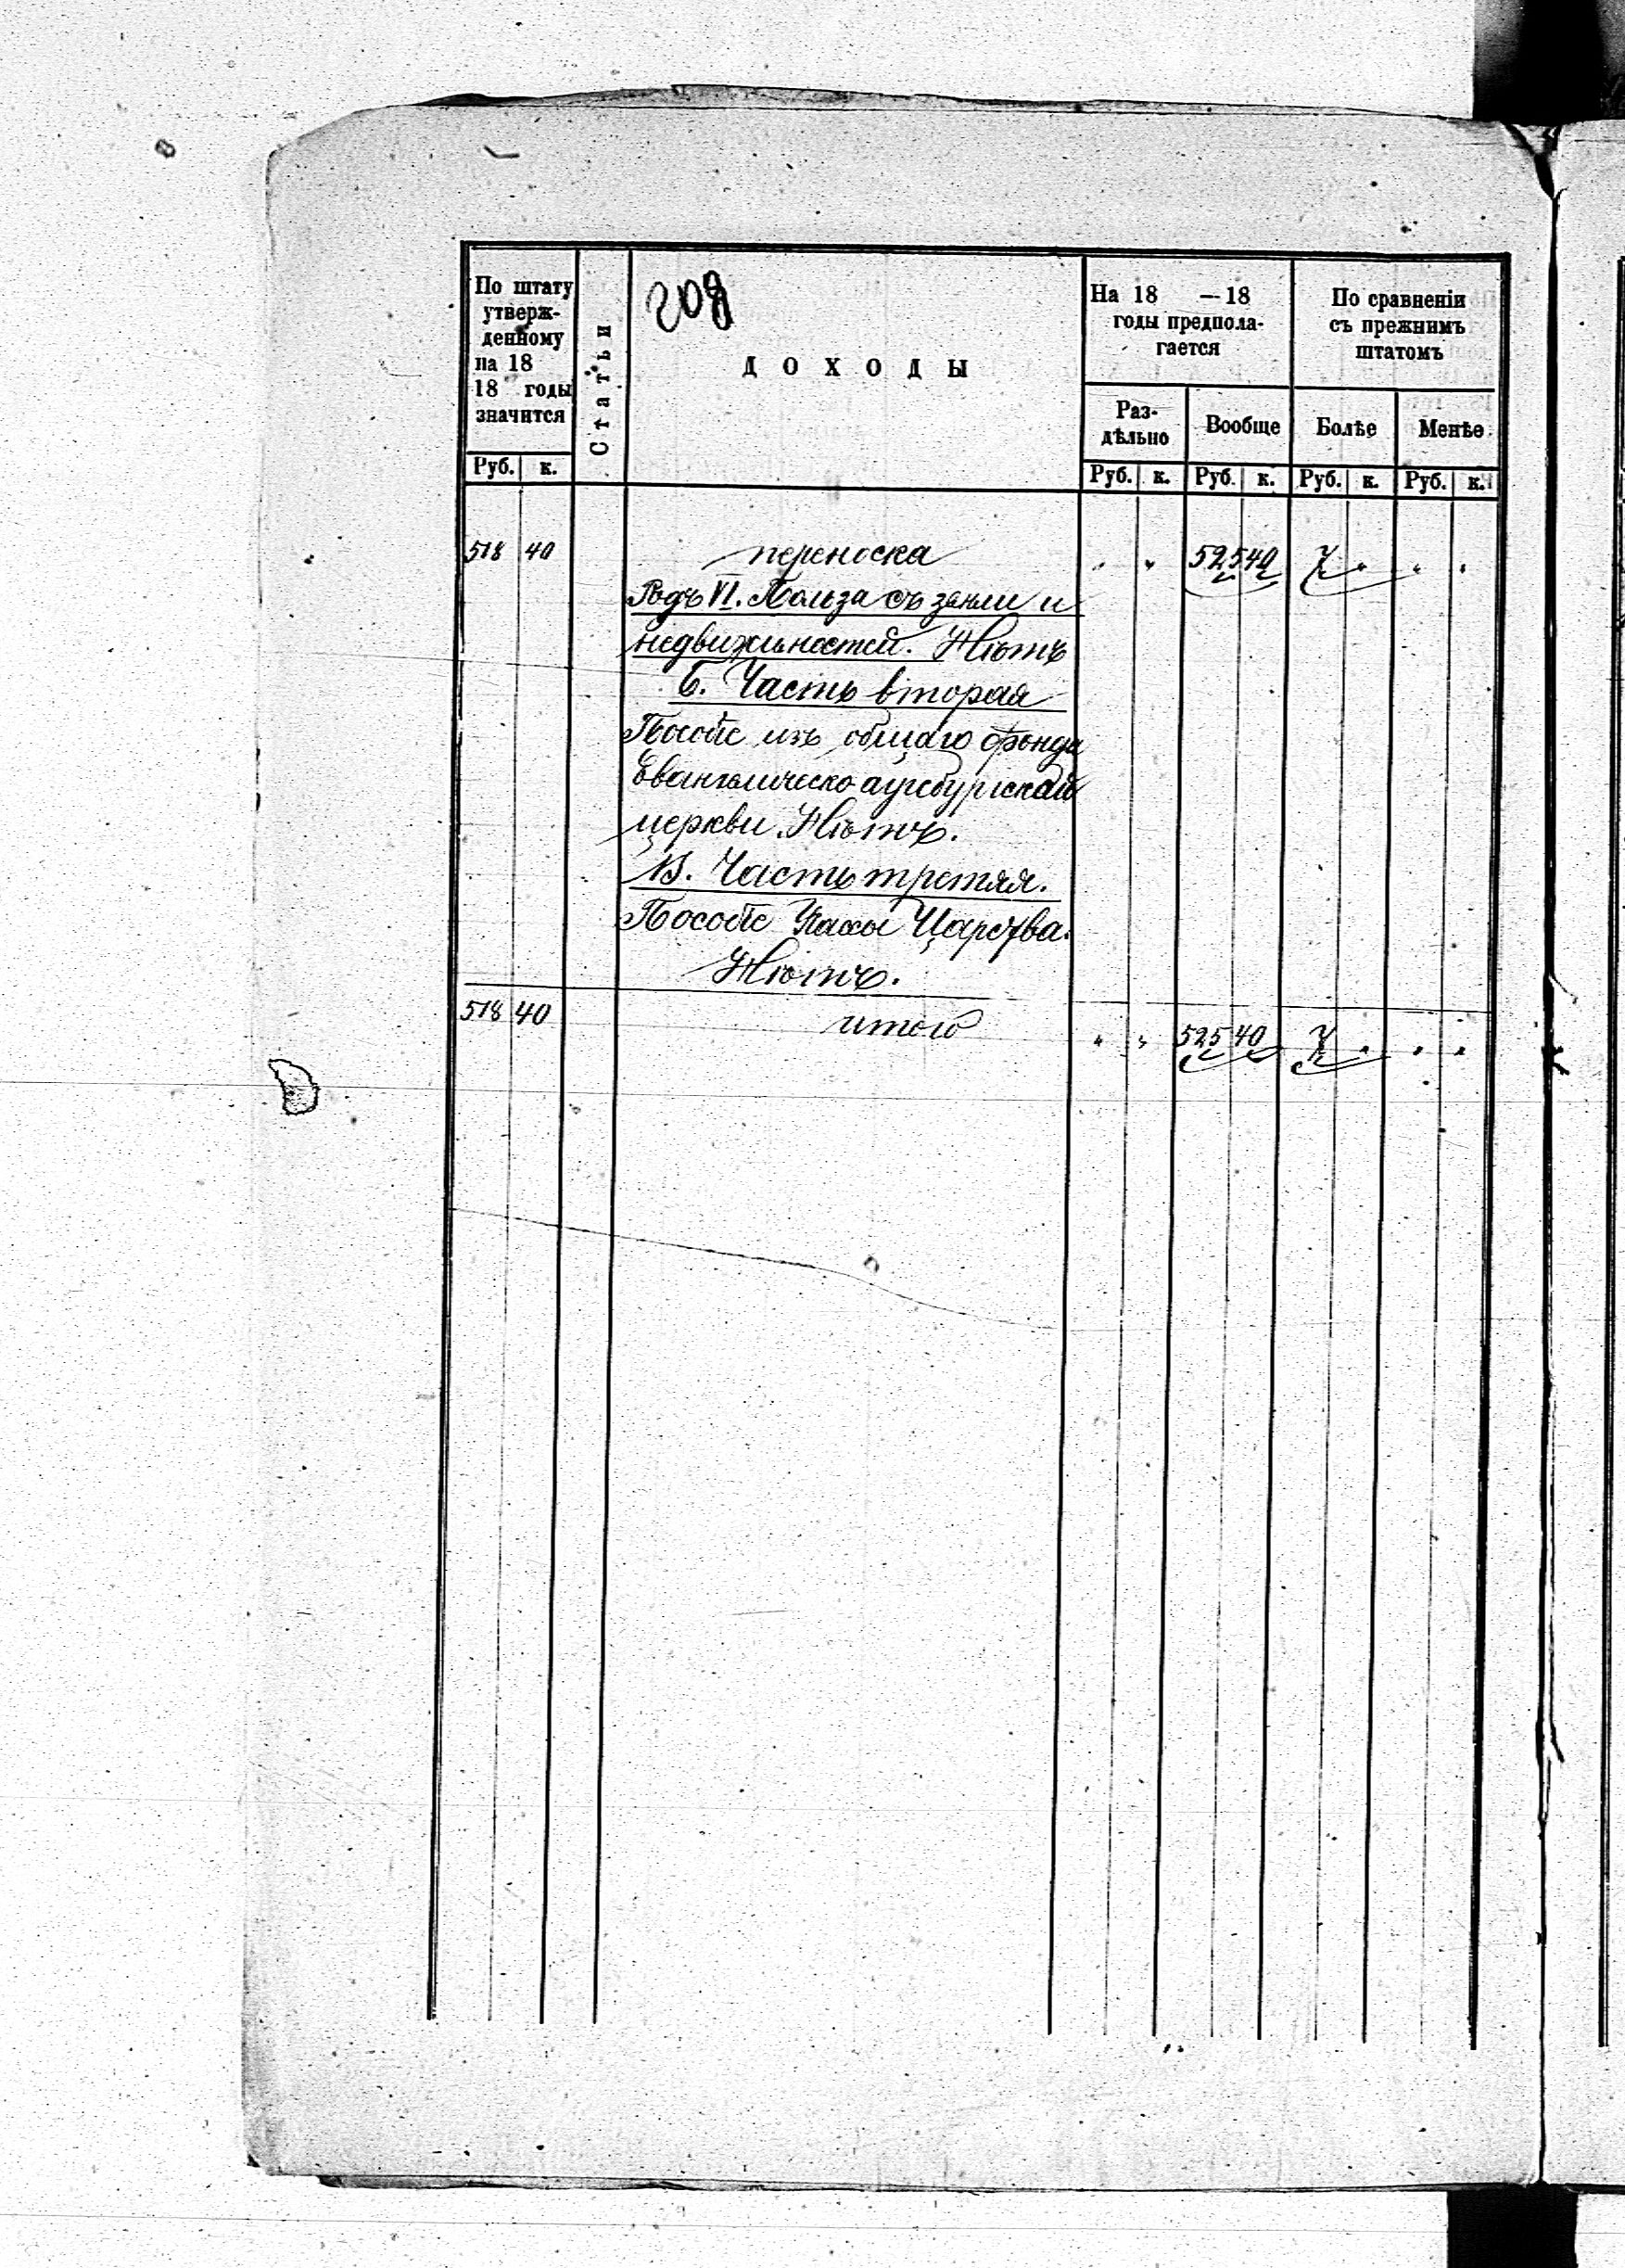 208
По штату
утверж-
денному
на 18
18 годы
значится
Руб. к.
Статьи
ДОХОДЫ
На 18 —18
годы предпола-
гается
Раз-
дѣльно
Вообще
По сравненіи
съ прежнимъ
штатомъ
Болѣе
Менѣе
Руб. к. Руб. к. Руб. к. Руб. к.
518 40 переноска " " 525 40 7 " " "
Родъ VI. Польза съ земли и
недвижимостей. Нютъ
Б. Часть вторая
Пособіе изъ общаго фонда
Евангелическо аугсбургскай
церкви. Нютъ.
В. Часть третяя.
Пособіе Кассы Царства.
Нютъ.
518 40 итого " " 525 40 7 " " "